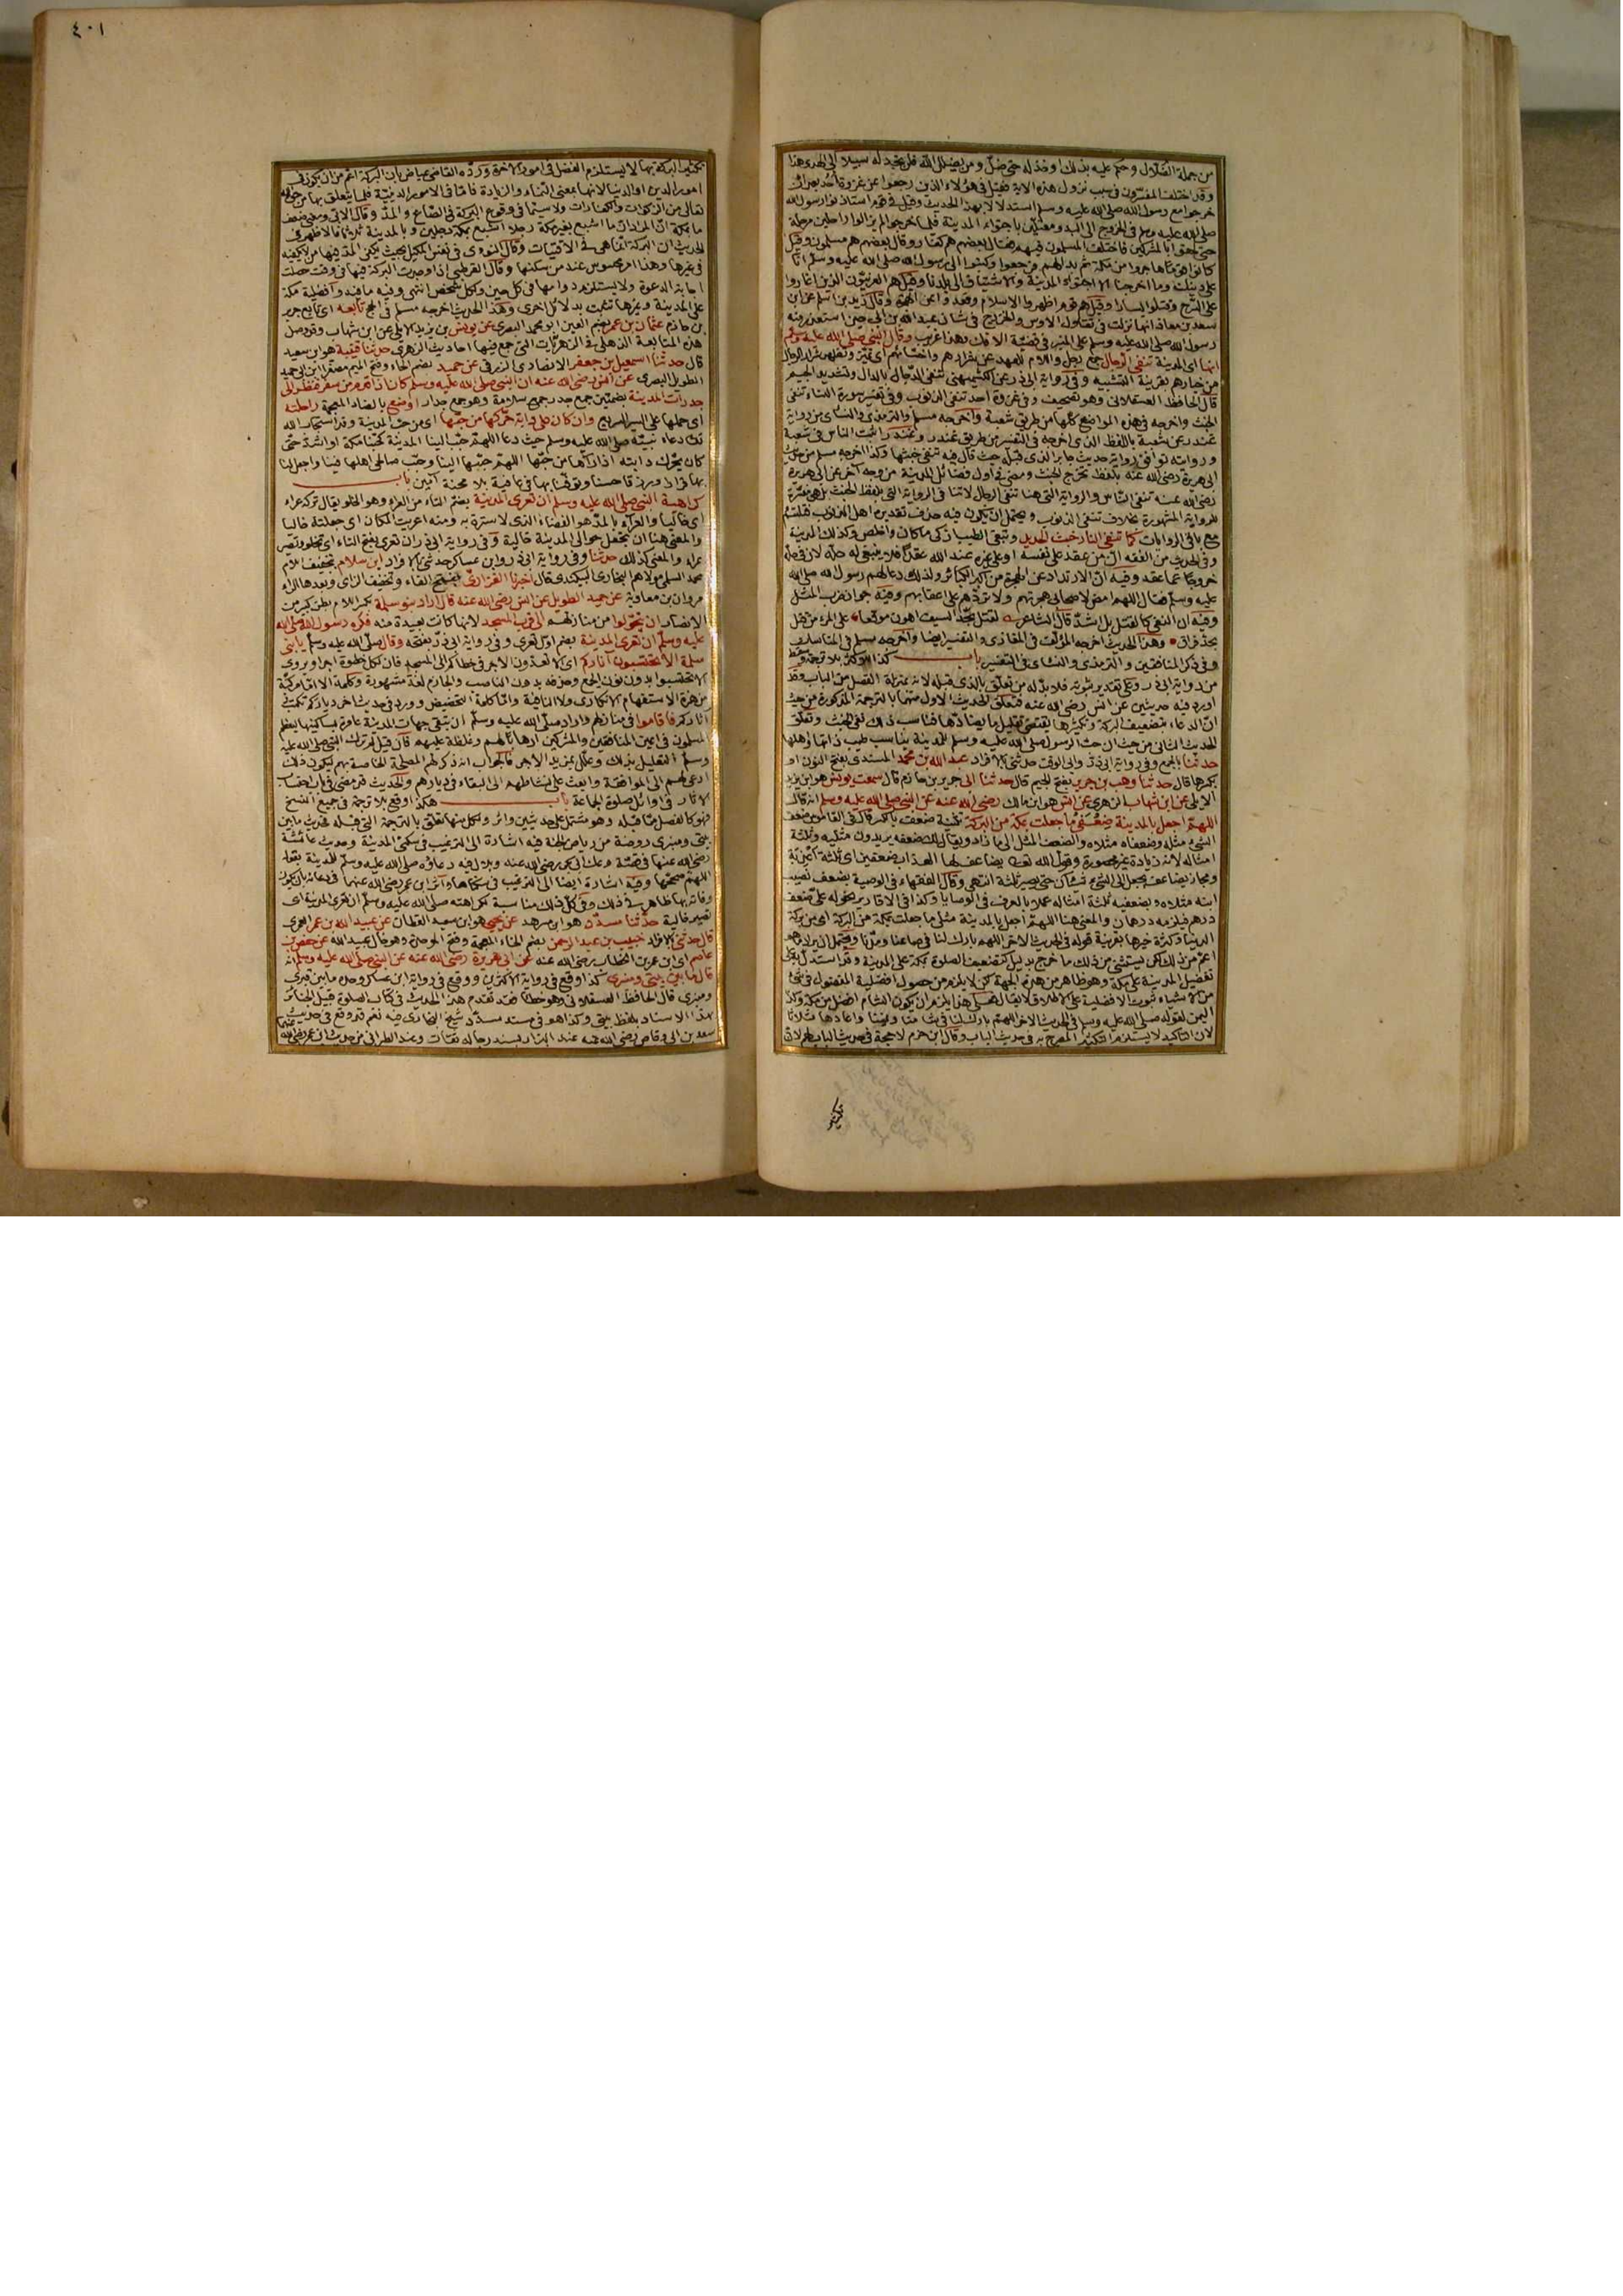 من جملة الضلال وحكم عليه بذلك او خذله حتى ضل ومن يضلل الله فلن تجد له سبيلا الى الهدى هذا
وقد اختلف المفسرون في سبب نزول هذه الاية فقيل في هؤلاء الذين رجعوا عن غزوة أحد بعد ان
خرجوا مع رسول الله صلى الله عليه وسلم استدلالا بهذا الحديث وقيل في قوم استاذنوا رسول الله
صلى الله عليه وسلم في الخروج الى البدو معتلين باجتواء المدينة فلما خرجوا لم يزالوا راحلين مرحلة
حتى لحقوا بالمشركين فاختلف المسلمون فيهم فقال بعضهم هم كفار وقال بعضهم هم مسلمون وقيل
كانوا قوما هاجروا من مكة ثم بدا لهم فرجعوا وكتبوا الى رسول الله صلى الله عليه وسلم انا
على دينك وما اخرجنا الا اجتواء المدينة والاشتياق الى بلدنا وقيل هم العرنيون الذين اغاروا
على السرح وقتلوا يسارا وقيل هم قوم اظهروا الاسلام وقعدوا عن الهجرة وقال زيد بن اسلم عن ابن
سعد بن معاذ انها نزلت في تقاول الاوس والخزرج في شان عبد الله بن ابي حين استعذر منه
رسول الله صلى الله عليه وسلم على المنبر في قضية الافك وهذا غريب وقال النبي صلى الله عليه وسلم
انها اى المدينة تنفي الرجال جمع رجل واللام للعهد عن شرارهم واخسائهم اى تميز وتظهر شرار الرجال
من خيارهم بقرينة التشبيه وفي رواية ابي ذر عن الكشميهني تنفي الدجال بالدال وتشديد الجيم
قال الحافظ العسقلاني وهو تصحيف وفي غزوة احد تنفي الذنوب وفي تفسير سورة النساء تنفي
الخبث واخرجه في هذه المواضع كلها من طريق شعبة واخرجه مسلم والترمذي والنسائي من رواية
غندر عن شعبة باللفظ الذى اخرجه في التفسير من طريق غندر وغندر اثبت الناس في شعبة
وروايته توافق رواية حديث جابر الذى قبله حيث قال فيه تنفي خبثها وكذا اخرجه مسلم من حديث
ابي هريرة رضى الله عنه بلفظ تخرج الخبث ومضى في اول فضائل المدينة من وجه آخر عن ابي هريرة
رضى الله عنه تنفي الناس والرواية التى هنا تنفي الرجال لا تنافي الرواية التى بلفظ الخبث بل هي مفسرة
للرواية المشهورة بخلاف تنفي الذنوب ويحتمل ان يكون فيه حذف تقديره اهل الذنوب فتلتئم
مع باقي الروايات كما تنفي النار خبث الحديد وتبقى الطيب ازكى ما كان واخلص وكذلك المدينة
وفي الحديث من الفقه ان من عقد على نفسه او على غيره عند الله عقدا فلا ينبغي له حله لان في حله
خروجا عما عقد وفيه ان الارتداد عن الهجرة من اكبر الكبائر ولذلك دعا لهم رسول الله صلى الله
عليه وسلم فقال اللهم امض لاصحابي هجرتهم ولا تردهم على اعقابهم وفيه جواز ضرب المثل
وفيه ان النفي كالقتل بل اشد قال الشاعر لقتل بحد السيف اهون موقعا على المرء من قتل
بحد فراق وهذا الحديث اخرجه المؤلف في المغازى والتفسير ايضا واخرجه مسلم في المناسك
وفي ذكر المنافقين والترمذي والنسائي في التفسير باب كذا للاكثر بلا ترجمة وسقط
من رواية ابي ذر وعلى تقدير ثبوته فلا بد له من تعلق بالذى قبله لانه بمنزلة الفصل من الباب وقد
اورد فيه حديثين عن انس رضى الله عنه فتعلق الحديث الاول منهما بالترجمة المذكورة من حيث
ان الدعاء بتضعيف البركة وتكثيرها يقتضي تقليل ما يضادها فناسب ذلك نفي الخبث وتعلق
الحديث الثاني من حيث ان حب الرسول صلى الله عليه وسلم للمدينة يناسب طيب ذاتها واهلها
حدثنا بالجمع وفي رواية ابي ذر وابي الوقت حدثني بالافراد عبد الله بن محمد المسندى بفتح النون او
بكسرها قال حدثنا وهب بن جرير بفتح الجيم قال حدثنا ابي جرير بن حازم قال سمعت يونس هو ابن يزيد
الايلي عن ابن شهاب الزهرى عن انس هو ابن مالك رضى الله عنه عن النبي صلى الله عليه وسلم انه قال
اللهم اجعل بالمدينة ضعفي ما جعلت بمكة من البركة تثنية ضعف بالكسر قال في القاموس ضعف
الشيء مثله وضعفاه مثلاه والضعف المثل الى ما زاد ويقال لك ضعفه يريدون مثليه وثلثة
امثاله لانه زيادة غير محصورة وقول الله تعالى يضاعف لها العذاب ضعفين اى ثلثة اعذبة
ومجاز يضاعف يجعل الى الشيء شيئان حتى يصير ثلثة انتهى وقال الفقهاء في الوصية بضعف نصيب
ابنه مثلاه وبضعفيه ثلثة امثاله عملا بالعرف في الوصايا وكذا في الاقارير نحو له على ضعف
درهم فيلزمه درهمان والمعنى هنا اللهم اجعل بالمدينة مثلي ما جعلت بمكة من البركة اى من بركة
الدنيا وكثرة خيرها بقرينة قوله في الحديث الاخر اللهم بارك لنا في صاعنا ومدنا ويحتمل ان يراد ما هو
اعم من ذلك لكن يستثنى من ذلك ما خرج بدليل كتضعيف الصلوة بمكة على المدينة وقد استدل به على
تفضيل المدينة على مكة وهو ظاهر من هذه الجهة لكن لا يلزم من حصول افضلية المفضول في شيء
من الاشياء ثبوت الافضلية على الاطلاق لا يقال فعلى هذا يلزم ان يكون الشام افضل من مكة وكذا
اليمن لقوله صلى الله عليه وسلم في الحديث الاخر اللهم بارك لنا في شامنا ويمننا واعادها ثلاثا
لان التاكيد لا يستلزم التكثير المصرح به في حديث الباب وقال ابن حزم لا حجة في حديث الباب لهم لان
تكثير
٤٠١
تكثير البركة بها لا يستلزم الفضل في امور الاخرة ورده القاضى عياض بان البركة اعم من ان يكون في
امور الدين او الدنيا لانها بمعنى النماء والزيادة فاما في الامور الدينية فلما يتعلق بها من حق الله
تعالى من الزكوات والكفارات ولا سيما في وقوع البركة في الصاع والمد وقال الابي ومعنى ضعف
ما بمكة ان المراد ان ما اشبع بغير مكة رجلا اشبع بمكة رجلين وبالمدينة ثلاثة فالاظهر في
الحديث ان البركة انما هي في الاقتيات وقال النووى في نفس المكيل بحيث يكفي المد فيها من لا يكفيه
في غيرها وهذا امر محسوس عند من سكنها وقال القرطبي اذا وجدت البركة فيها في وقت حصلت
اجابة الدعوة ولا يستلزم دوامها في كل حين ولكل شخص انتهى وفيه ما فيه وافضلية مكة
على المدينة وغيرها تثبت بدلائل اخرى وهذا الحديث اخرجه مسلم في الحج تابعه اى تابع جرير
بن حازم عثمان بن عمر بضم العين ابو محمد البصرى عن يونس بن يزيد الايلي عن ابن شهاب وقد وصل
هذه المتابعة الذهلي في الزهريات التى جمع فيها احاديث الزهرى حدثنا قتيبة هو ابن سعيد
قال حدثنا اسمعيل بن جعفر الانصارى الزرقي عن حميد بضم الحاء وفتح الميم مصغرا ابن ابي حميد
الطويل البصرى عن انس رضى الله عنه ان النبي صلى الله عليه وسلم كان اذا قدم من سفر فنظر الى
جدرات المدينة بضمتين جمع جدر جمع سلامة وهو جمع جدار اوضع بالضاد المعجمة راحلته
اى حملها على السير السريع وان كان على دابة حركها من حبها اى من حب المدينة وقد استجاب الله
تعالى دعاء نبيه صلى الله عليه وسلم حيث دعا اللهم حبب الينا المدينة كحبنا مكة او اشد حتى
كان يحرك دابته اذا رآها من حبها اللهم حببها الينا وحبب صالحى اهلها فينا واجعل لنا
بها قرارا ورزقا حسنا وتوفنا بها في عافية بلا محنة آمين باب
كراهية النبي صلى الله عليه وسلم ان تعرى المدينة بضم التاء من العراء وهو الخلو يقال تركه عراء
اى خاليا والعراء بالمد هو الفضاء الذى لا سترة به ومنه اعريت المكان اى جعلته خاليا
والمعنى هنا ان تجعل حوالى المدينة خالية وفي رواية ابي ذر ان تعرى بفتح التاء اى تخلو وتصير
عراء والمعنى كذلك حدثنا وفي رواية ابي ذر وابن عساكر حدثني بالافراد ابن سلام بتخفيف اللام
محمد السلمي مولاهم البخارى البيكندى قال اخبرنا الفزارى بفتح الفاء وتخفيف الزاى وبعدها الراء
مروان بن معاوية عن حميد الطويل عن انس رضى الله عنه قال اراد بنو سلمة بكسر اللام بطن كبير من
الانصار ان يتحولوا من منازلهم الى قرب المسجد لانها كانت بعيدة منه فكره رسول الله صلى الله
عليه وسلم ان تعرى المدينة بضم اول تعرى وفي رواية ابي ذر بفتحه وقال صلى الله عليه وسلم يا بني
سلمة الا تحتسبون آثاركم اى الا تعدون الاجر في خطاكم الى المسجد فان لكل خطوة اجرا ويروى
الا تحتسبوا بدون نون الجمع وحذفه بدون الناصب والجازم لغة مشهورة وكلمة الا اما مركبة
من همزة الاستفهام الانكارى ولا النافية واما كلمة التحضيض وورد في حديث اخر دياركم تكتب
آثاركم فاقاموا في منازلهم واراد صلى الله عليه وسلم ان تبقى جهات المدينة عامرة بساكنيها ليعظم
المسلمون في اعين المنافقين والمشركين ارهابا لهم وغلظة عليهم فان قيل لم ترك النبي صلى الله عليه
وسلم التعليل بذلك وعلل بمزيد الاجر فالجواب انه ذكر لهم المصلحة الخاصة بهم ليكون ذلك
ادعى لهم الى الموافقة وابعث على نشاطهم الى البقاء في ديارهم والحديث قد مضى في باب احتساب
الاثار في اوائل صلوة الجماعة باب هكذا وقع بلا ترجمة في جميع النسخ
فهو كالفصل مما قبله وهو مشتمل على حديثين واثر ولكل منها تعلق بالترجمة التى قبله فحديث ما بين
بيتي ومنبرى روضة من رياض الجنة فيه اشارة الى الترغيب في سكنى المدينة وحديث عائشة
رضى الله عنها في قصة وعك ابي بكر رضى الله عنه وبلال فيه دعاؤه صلى الله عليه وسلم للمدينة بقوله
اللهم صححها وفيه اشارة ايضا الى الترغيب في سكناها واثر ابن عمر رضى الله عنهما في دعائه بان يكون
وفاته بها ظاهر في ذلك وفي كل ذلك مناسبة لكراهته صلى الله عليه وسلم ان تعرى المدينة اى
تصير خالية حدثنا مسدد هو ابن مسرهد عن يحيى هو ابن سعيد القطان عن عبيد الله بن عمر العمرى
قال حدثني بالافراد خبيب بن عبد الرحمن بضم الخاء المعجمة وفتح الموحدة وهو خال عبيد الله عن حفص بن
عاصم اى ابن عمر بن الخطاب رضى الله عنه عن ابي هريرة رضى الله عنه عن النبي صلى الله عليه وسلم انه
قال ما بين بيتي ومنبرى كذا وقع في رواية الاكثرين ووقع في رواية ابن عساكر وحده ما بين قبرى
ومنبرى قال الحافظ العسقلاني وهو خطأ فقد تقدم هذا الحديث في كتاب الصلوة قبيل الجنائز
بهذا الاسناد بلفظ بيتي وكذا هو في مسند مسدد شيخ البخارى فيه نعم قد وقع في حديث
سعد بن ابي وقاص رضى الله عنه عند البزار بسند رجاله ثقات وعند الطبراني من حديث ابن عمر رضى الله عنهما